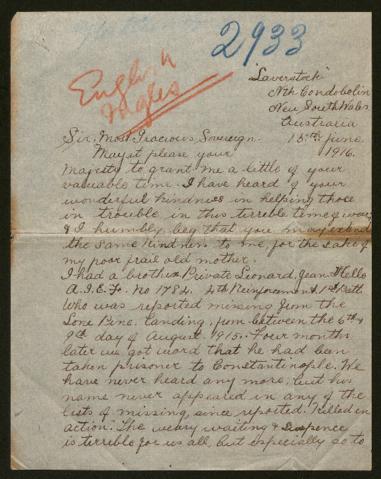 2933
English
Ingles
"Laverstock"
Nth Condobolin
New South Wales
Australia
15th June
1916.
Sir, Most Gracious Sovereign.
May it please your
Majesty to grant me a little of your
valuable time. I have heard of your
wonderful kindness in helping those
in trouble in this terrible time of war,
& I humbly beg that you may extend
the same kindness to me, for the sake of
my poor frail old mother.
I had a brother Private Leonard, Jean
A.I.F. No 1784. 4th Reinforcement
Who was reported missing from the
Lone Pine. Landing, from between the 6th &
9th day of August 1915. Four months
later we got word that he had been
taken prisoner to Constantinople. We
have never heard any more, but his
name never appeared in any of the
lists of missing, since reported. Killed in
action. The weary waiting & suspence
is terrible for us all, but especially so to